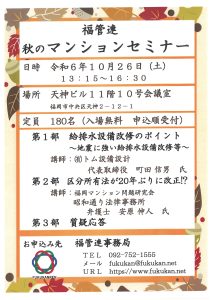 福管連
秋のマンションセミナー
日時 令和6年10月26日(土)
13:15～16:30
場所 天神ビル11階10号会議室
福岡市中央区天神2-12-1
定員 180名(入場無料 申込順受付)
第1部 給排水設備改修のポイント
～地震に強い給排水設備改修等～
講師:㈲トム設備設計
代表取締役 町田 信男 氏
第2部 区分所有法が20年ぶりに改正!?
講師:福岡マンション問題研究会
昭和通り法律事務所
弁護士 安原 伸人 氏
第3部 質疑応答
お申込み先 福管連事務局
FUKUKANREN
TEL 092-752-1555
メール fukukan@fukukan.net
URL https://www.fukukan.net